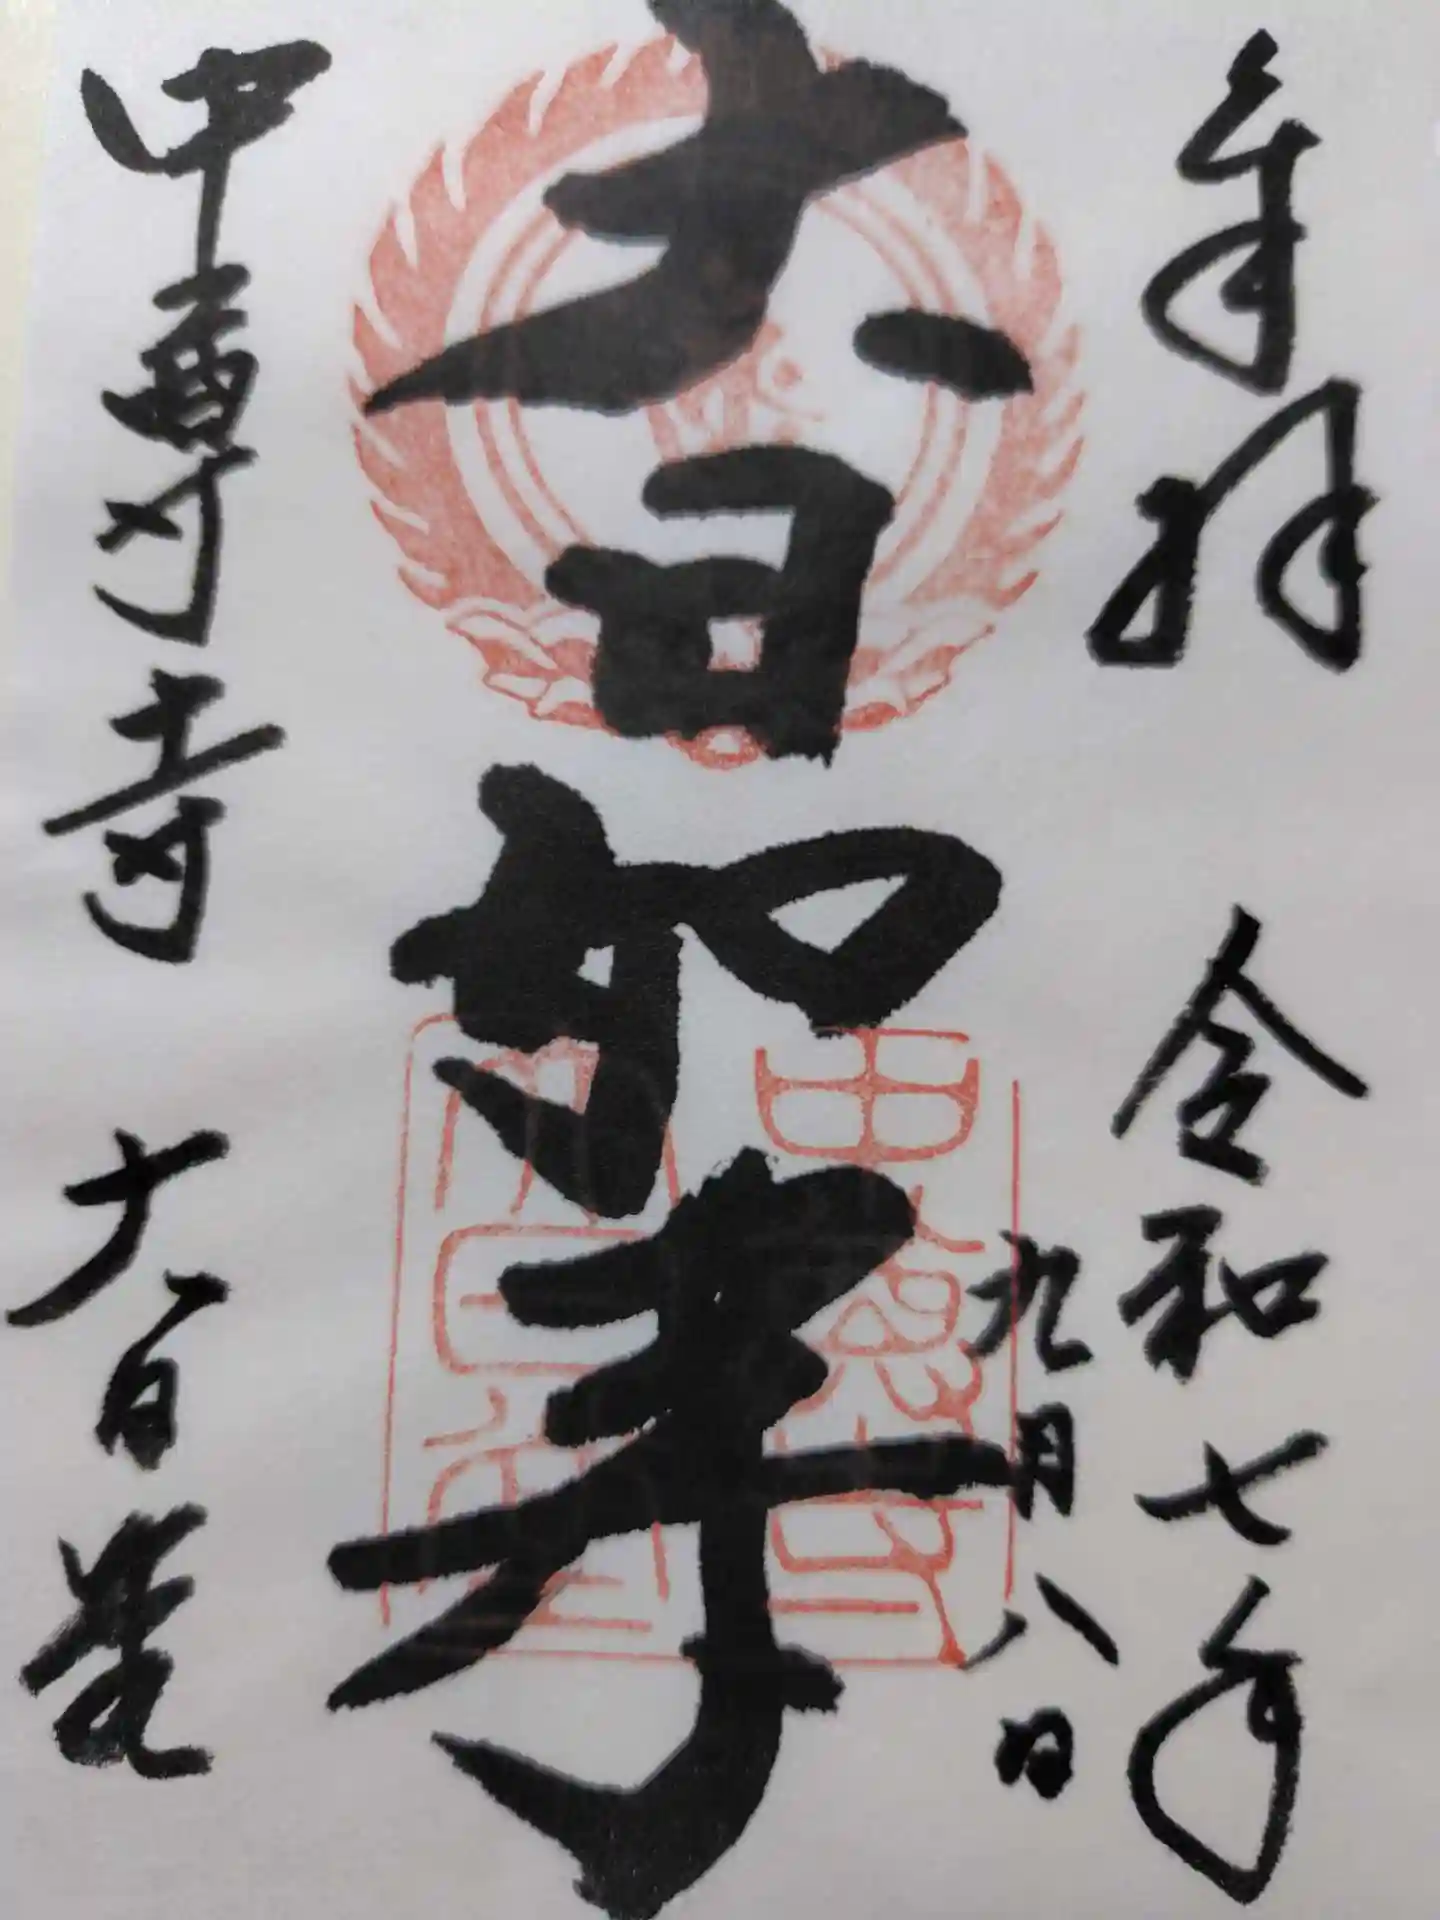 奉拝
令和七年
九月八日
大日如来
中尊寺
大日堂